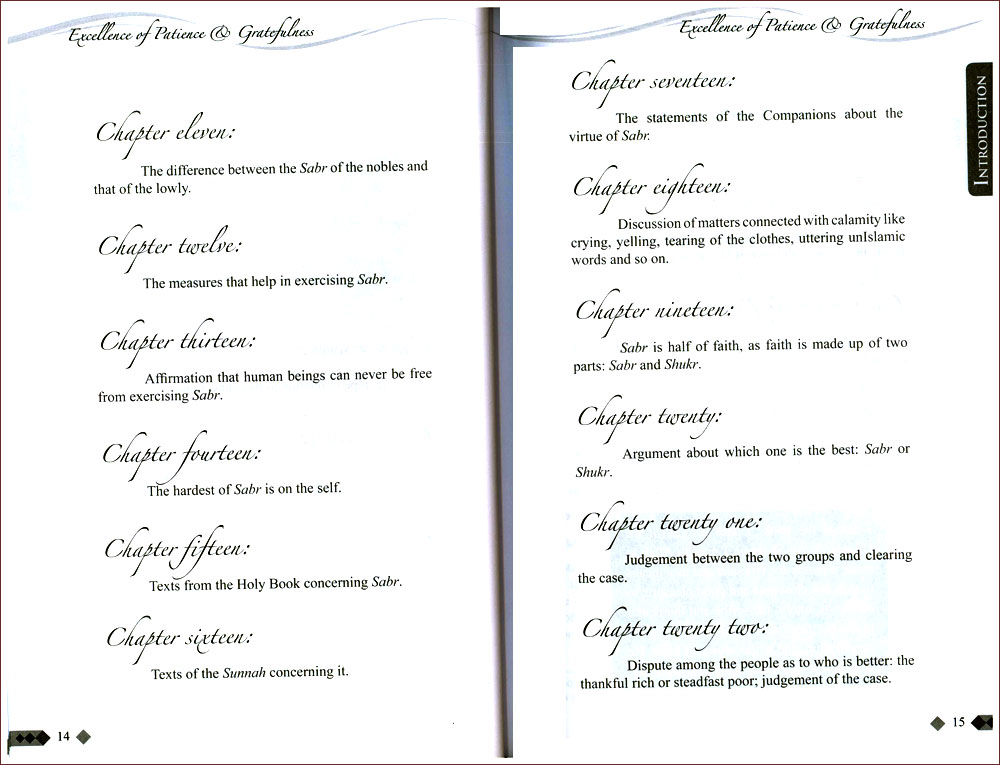 Excellence of Patience & Gratefulness
Chapter eleven:
The difference between the Sabr of the nobles and
that of the lowly.
Chapter twelve:
The measures that help in exercising Sabr.
Chapter thirteen:
Affirmation that human beings can never be free
from exercising Sabr.
Chapter fourteen:
The hardest of Sabr is on the self.
Chapter fifteen:
Texts from the Holy Book concerning Sabr.
Chapter sixteen:
Texts of the Sunnah concerning it.
14
Excellence of Patience & Gratefulness
INTRODUCTION
Chapter seventeen:
The statements of the Companions about the
virtue of Sabr.
Chapter eighteen:
Discussion of matters connected with calamity like
crying, yelling, tearing of the clothes, uttering unIslamic
words and so on.
Chapter nineteen:
Sabr is half of faith, as faith is made up of two
parts: Sabr and Shukr.
Chapter twenty:
Argument about which one is the best: Sabr or
Shukr.
Chapter twenty one:
Judgement between the two groups and clearing
the case.
Chapter twenty two:
Dispute among the people as to who is better: the
thankful rich or steadfast poor; judgement of the case.
15